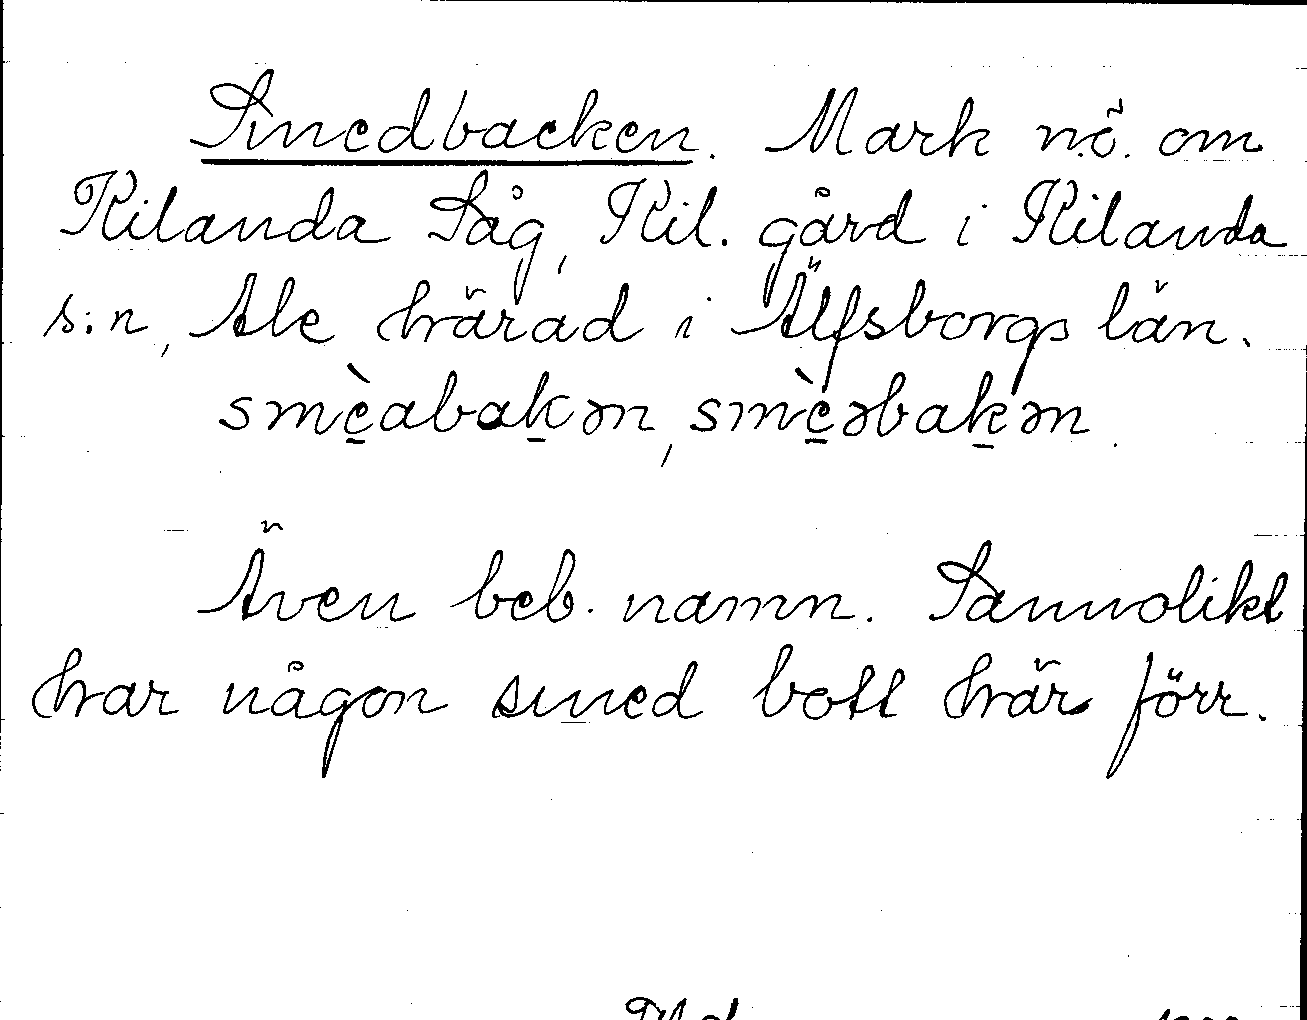 Smedbacken. Mark n.ö. om
Kilanda Såg, Kil. gård i Kilanda
s:n, Ale härad i Älfsborgs län.
smèabakən, smèəbakən.
Även beb. namn. Sannolikt
har någon smed bott här förr.